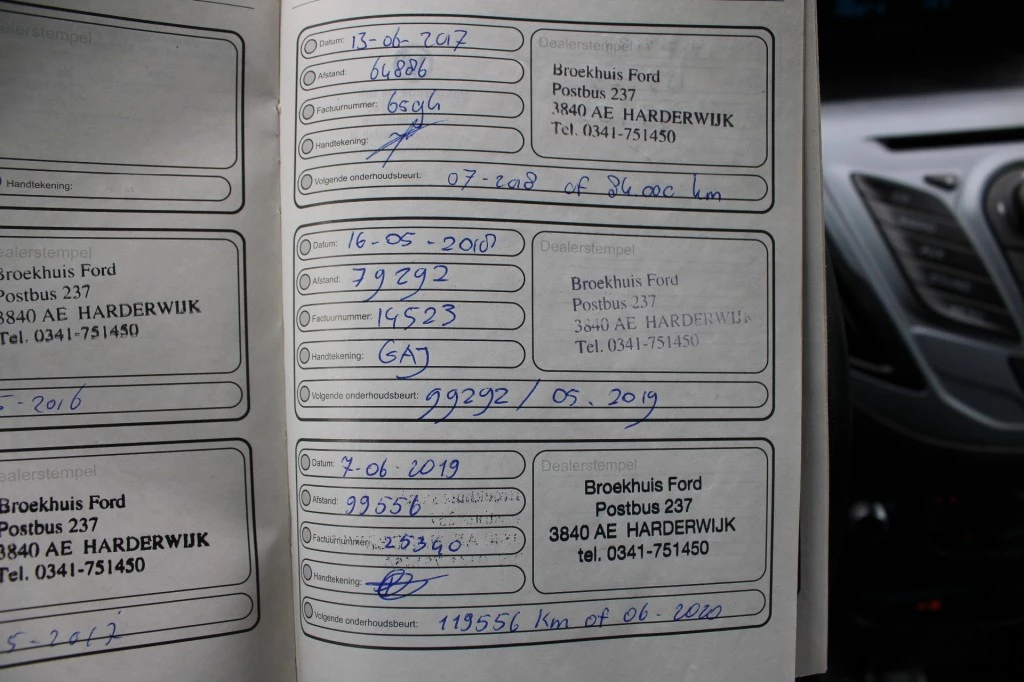 Dealerstempel
Handtekening:
Dealerstempel
Broekhuis Ford
Postbus 237
3840 AE HARDERWIJK
Tel. 0341-751450
5-2016
Dealerstempel
Broekhuis Ford
Postbus 237
3840 AE HARDERWIJK
Tel. 0341-751450
5-2017
Datum: 13-06-2017
Afstand: 64886
Factuurnummer:
Handtekening:
Dealerstempel
Broekhuis Ford
Postbus 237
3840 AE HARDERWIJK
Tel. 0341-751450
Volgende onderhoudsbeurt: 07-2018 of 84.000 km
Datum: 16-05-2018
Afstand: 79292
Factuurnummer: 14523
Handtekening: GAJ
Dealerstempel
Broekhuis Ford
Postbus 237
3840 AE HARDERWIJK
Tel. 0341-751450
Volgende onderhoudsbeurt: 99292 / 05.2019
Datum: 7-06-2019
Afstand: 99556
Factuurnummer: 25340
Handtekening:
Dealerstempel
Broekhuis Ford
Postbus 237
3840 AE HARDERWIJK
tel. 0341-751450
Volgende onderhoudsbeurt: 119556 km of 06-2020